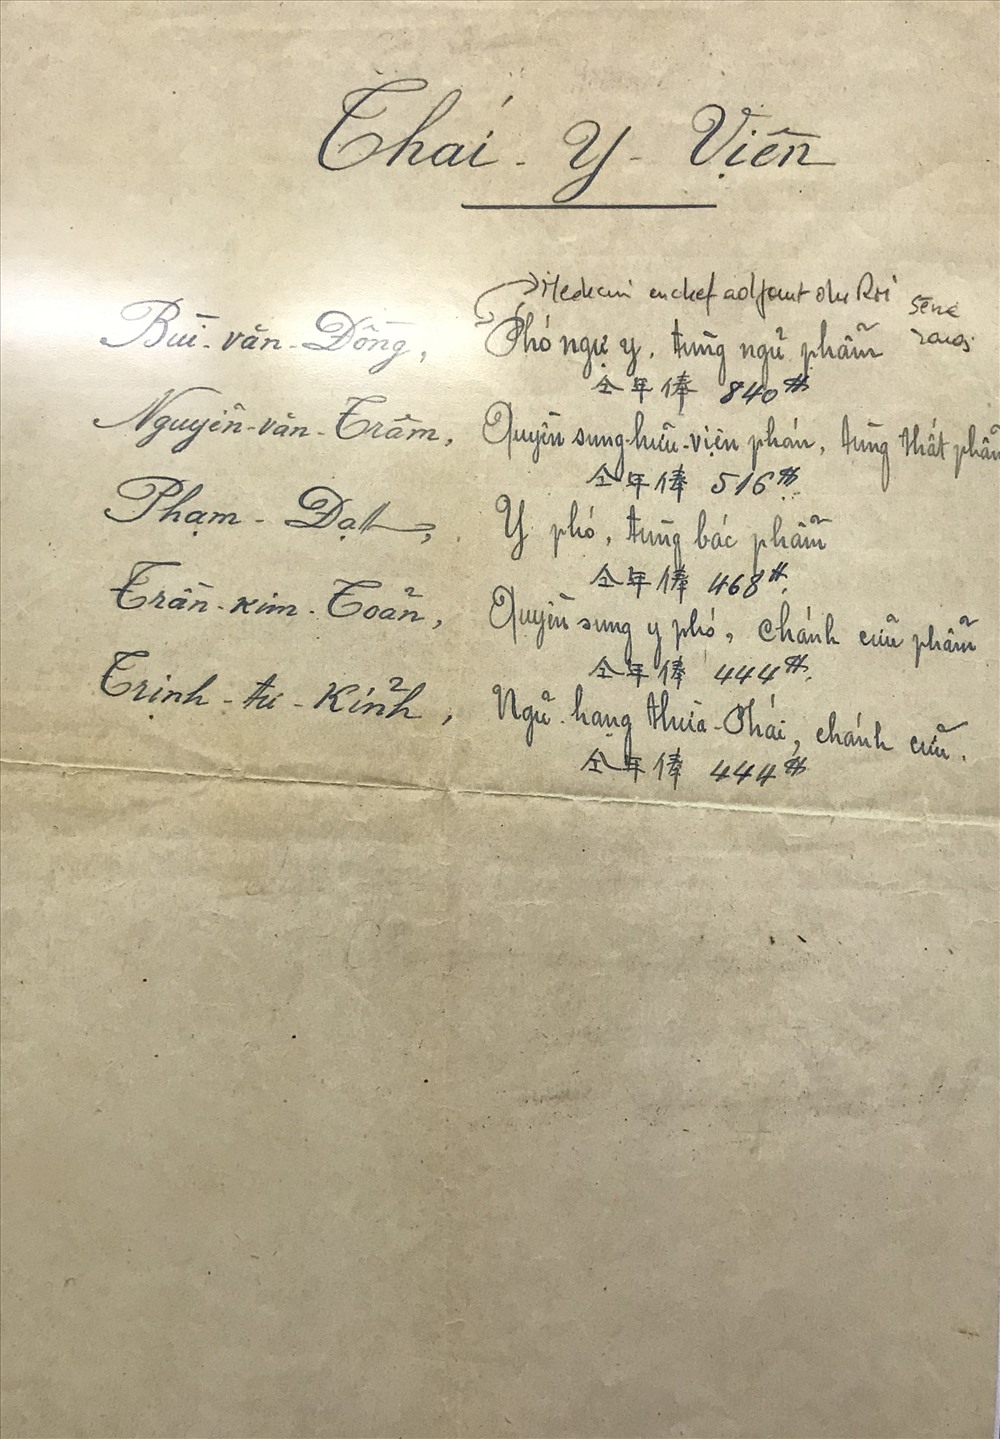 Thái - Y - Viện
Médecin en chef adjoint du Roi
5ème
rang
Bùi - văn - Đồng, Phó ngự y, tùng ngũ phẩm
仝年俸 840$
Nguyễn - văn - Trâm, Quyền sung hữu - viện phán, tùng thất phẩm
仝年俸 516$
Phạm - Đạt, Y phó, tùng bác phẩm
仝年俸 468$
Trần - Kim - Toản, Quyền sung y phó, chánh cửu phẩm
仝年俸 444$
Trịnh - tư - Kỉnh, Ngũ hạng thừa - Phái, chánh cửu.
仝年俸 444$